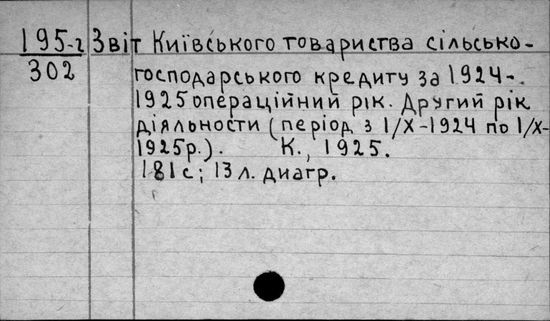 195-г Звіт Київського товариства сільсько-
302 господарського кредиту за 1924-
1925 операційний рік. Другий рік
діяльности (період з 1/X-1924 по 1/X-
1925р.). К., 1925.
181с; 13л. диагр.